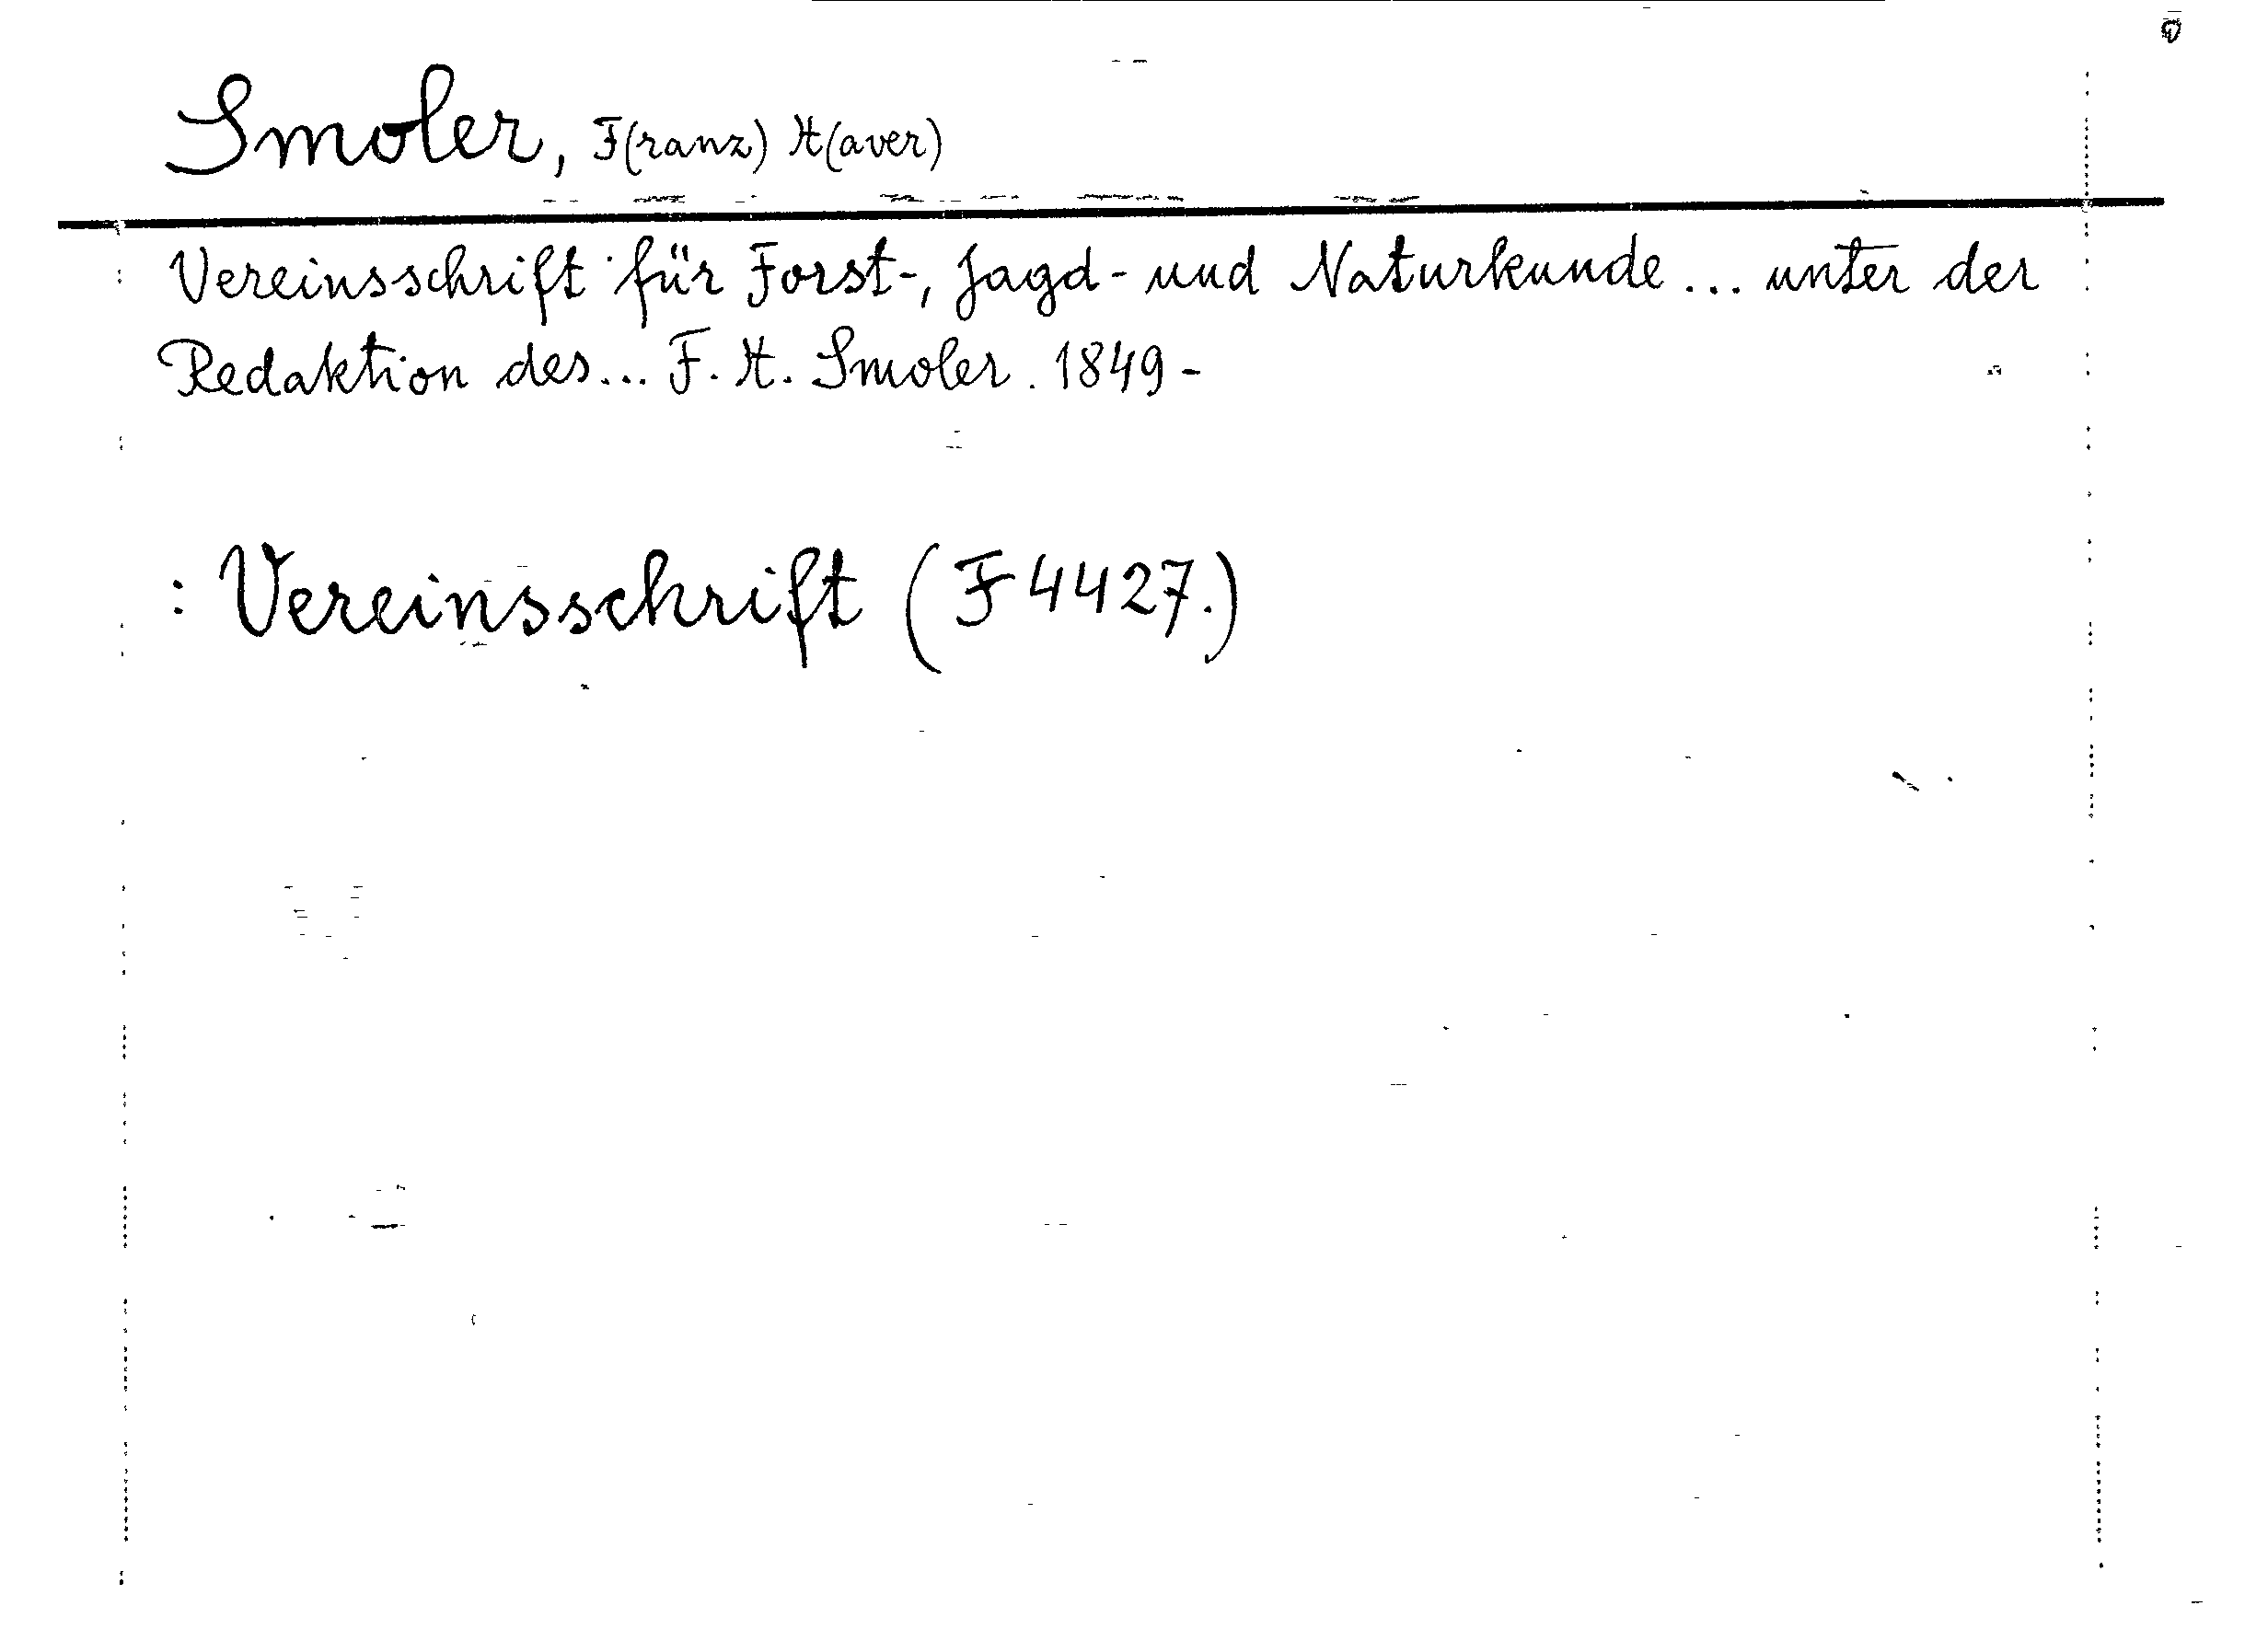 Smoler, F(ranz) X(aver)
Vereinsschrift für Forst-, Jagd- und Naturkunde ... unter der
Redaktion des ... F. X. Smoler. 1849-
: Vereinsschrift (F 4427.)